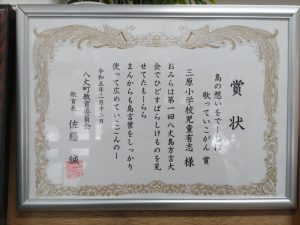 賞状
島の想いをでーじに
歌っていこがん 賞
三原小学校児童有志 様
おみらは第一回八丈島方言大
会でひどすばらしけものを見
せてたもーらら
まんからも島言葉をしっかり
使って広めていこごんのー
令和五年二月十二日
八丈町教育委員会
教育長 佐藤 誠